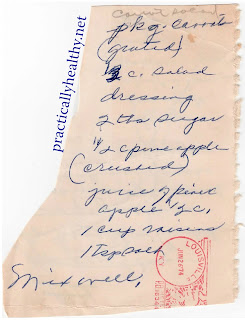 Carrot Salad
pkg. carrots
(grated)
1/2 c. salad
dressing
2 tbs sugar
1/2 c pineapple
(crushed)
juice of pine
apple 1/2 c.
1 cup raisins
1 tsp salt
Mix well.
practicallyhealthy.net
LOUISVILLE
KY
JUN 26